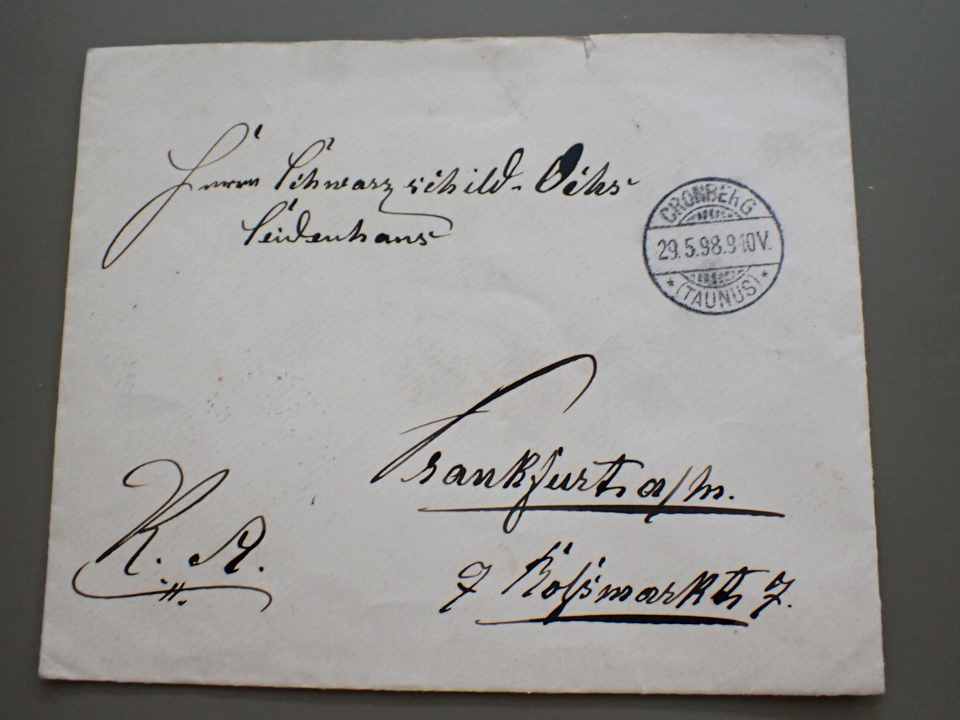 Herrn Schwarzschild-Ochs
Seidenhaus
CRONBERG
29.5.98.9-10V.
* (TAUNUS) *
Frankfurt a/m.
K. A.
7 Roßmarkt 7.